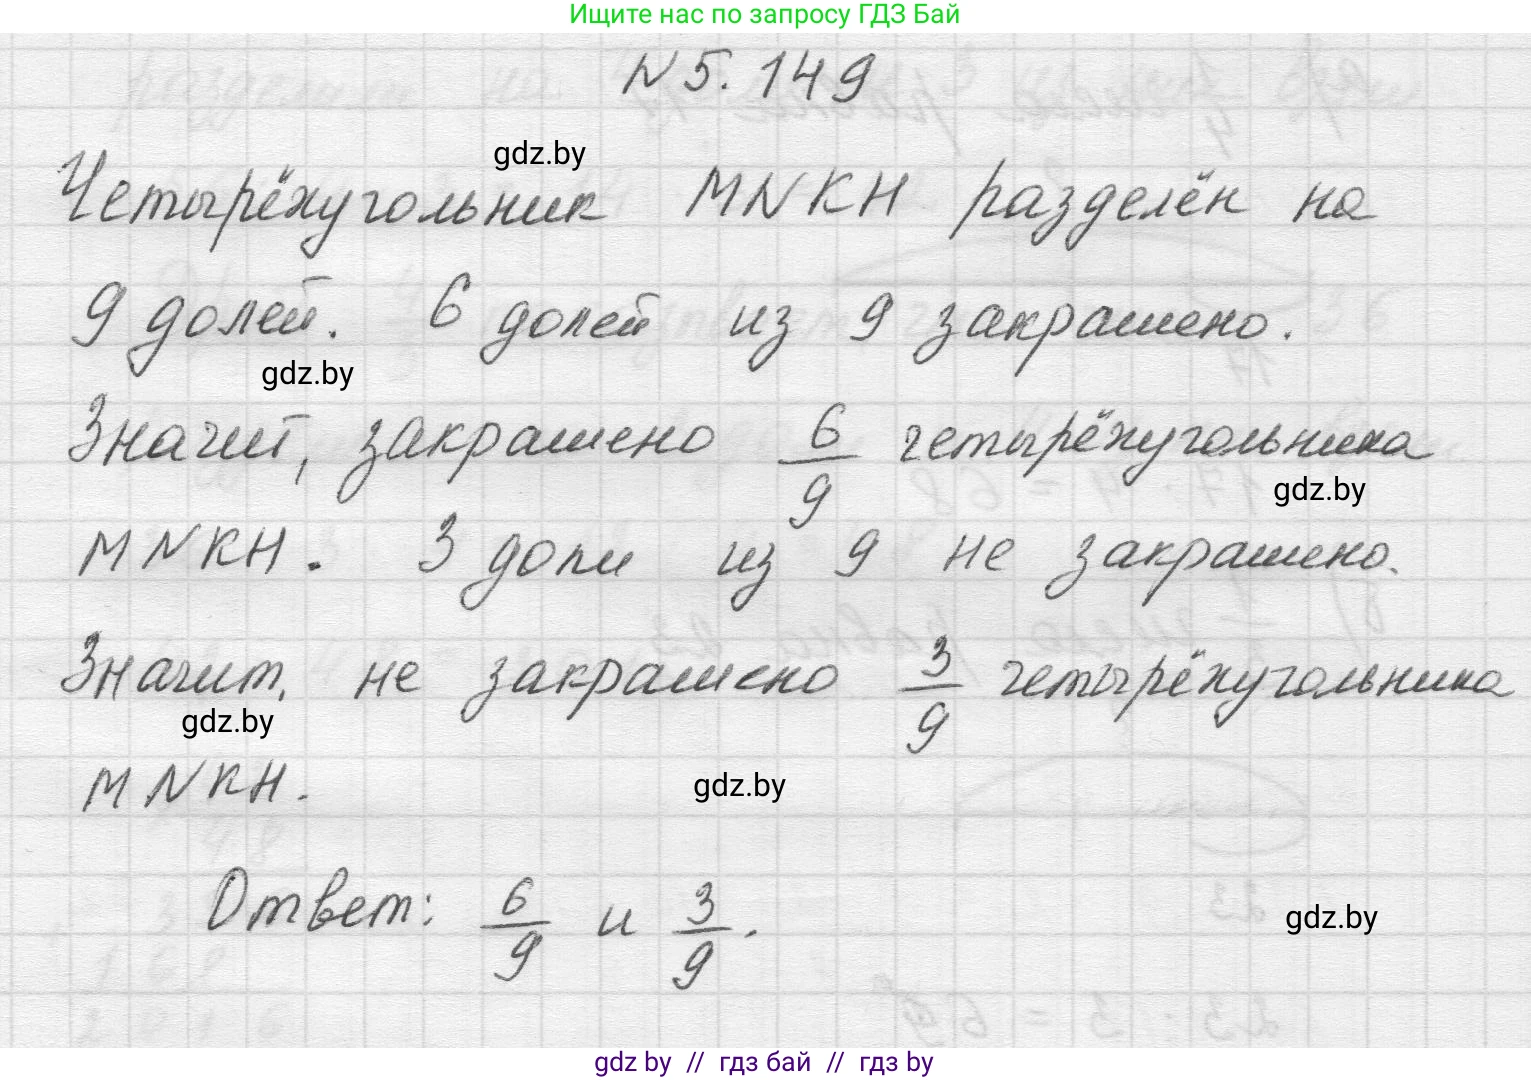 Ищите нас по запросу ГДЗ Бай
N 5.149
gdz.by
Четырёхугольник MNKH разделён на
9 долей. 6 долей из 9 закрашено.
gdz.by
Значит, закрашено 6/9 четырёхугольника
gdz.by
MNKH. 3 доли из 9 не закрашено.
Значит, не закрашено 3/9 четырёхугольника
gdz.by
MNKH.
gdz.by
Ответ: 6/9 и 3/9.
gdz.by
gdz by // гдз бай // гдз by